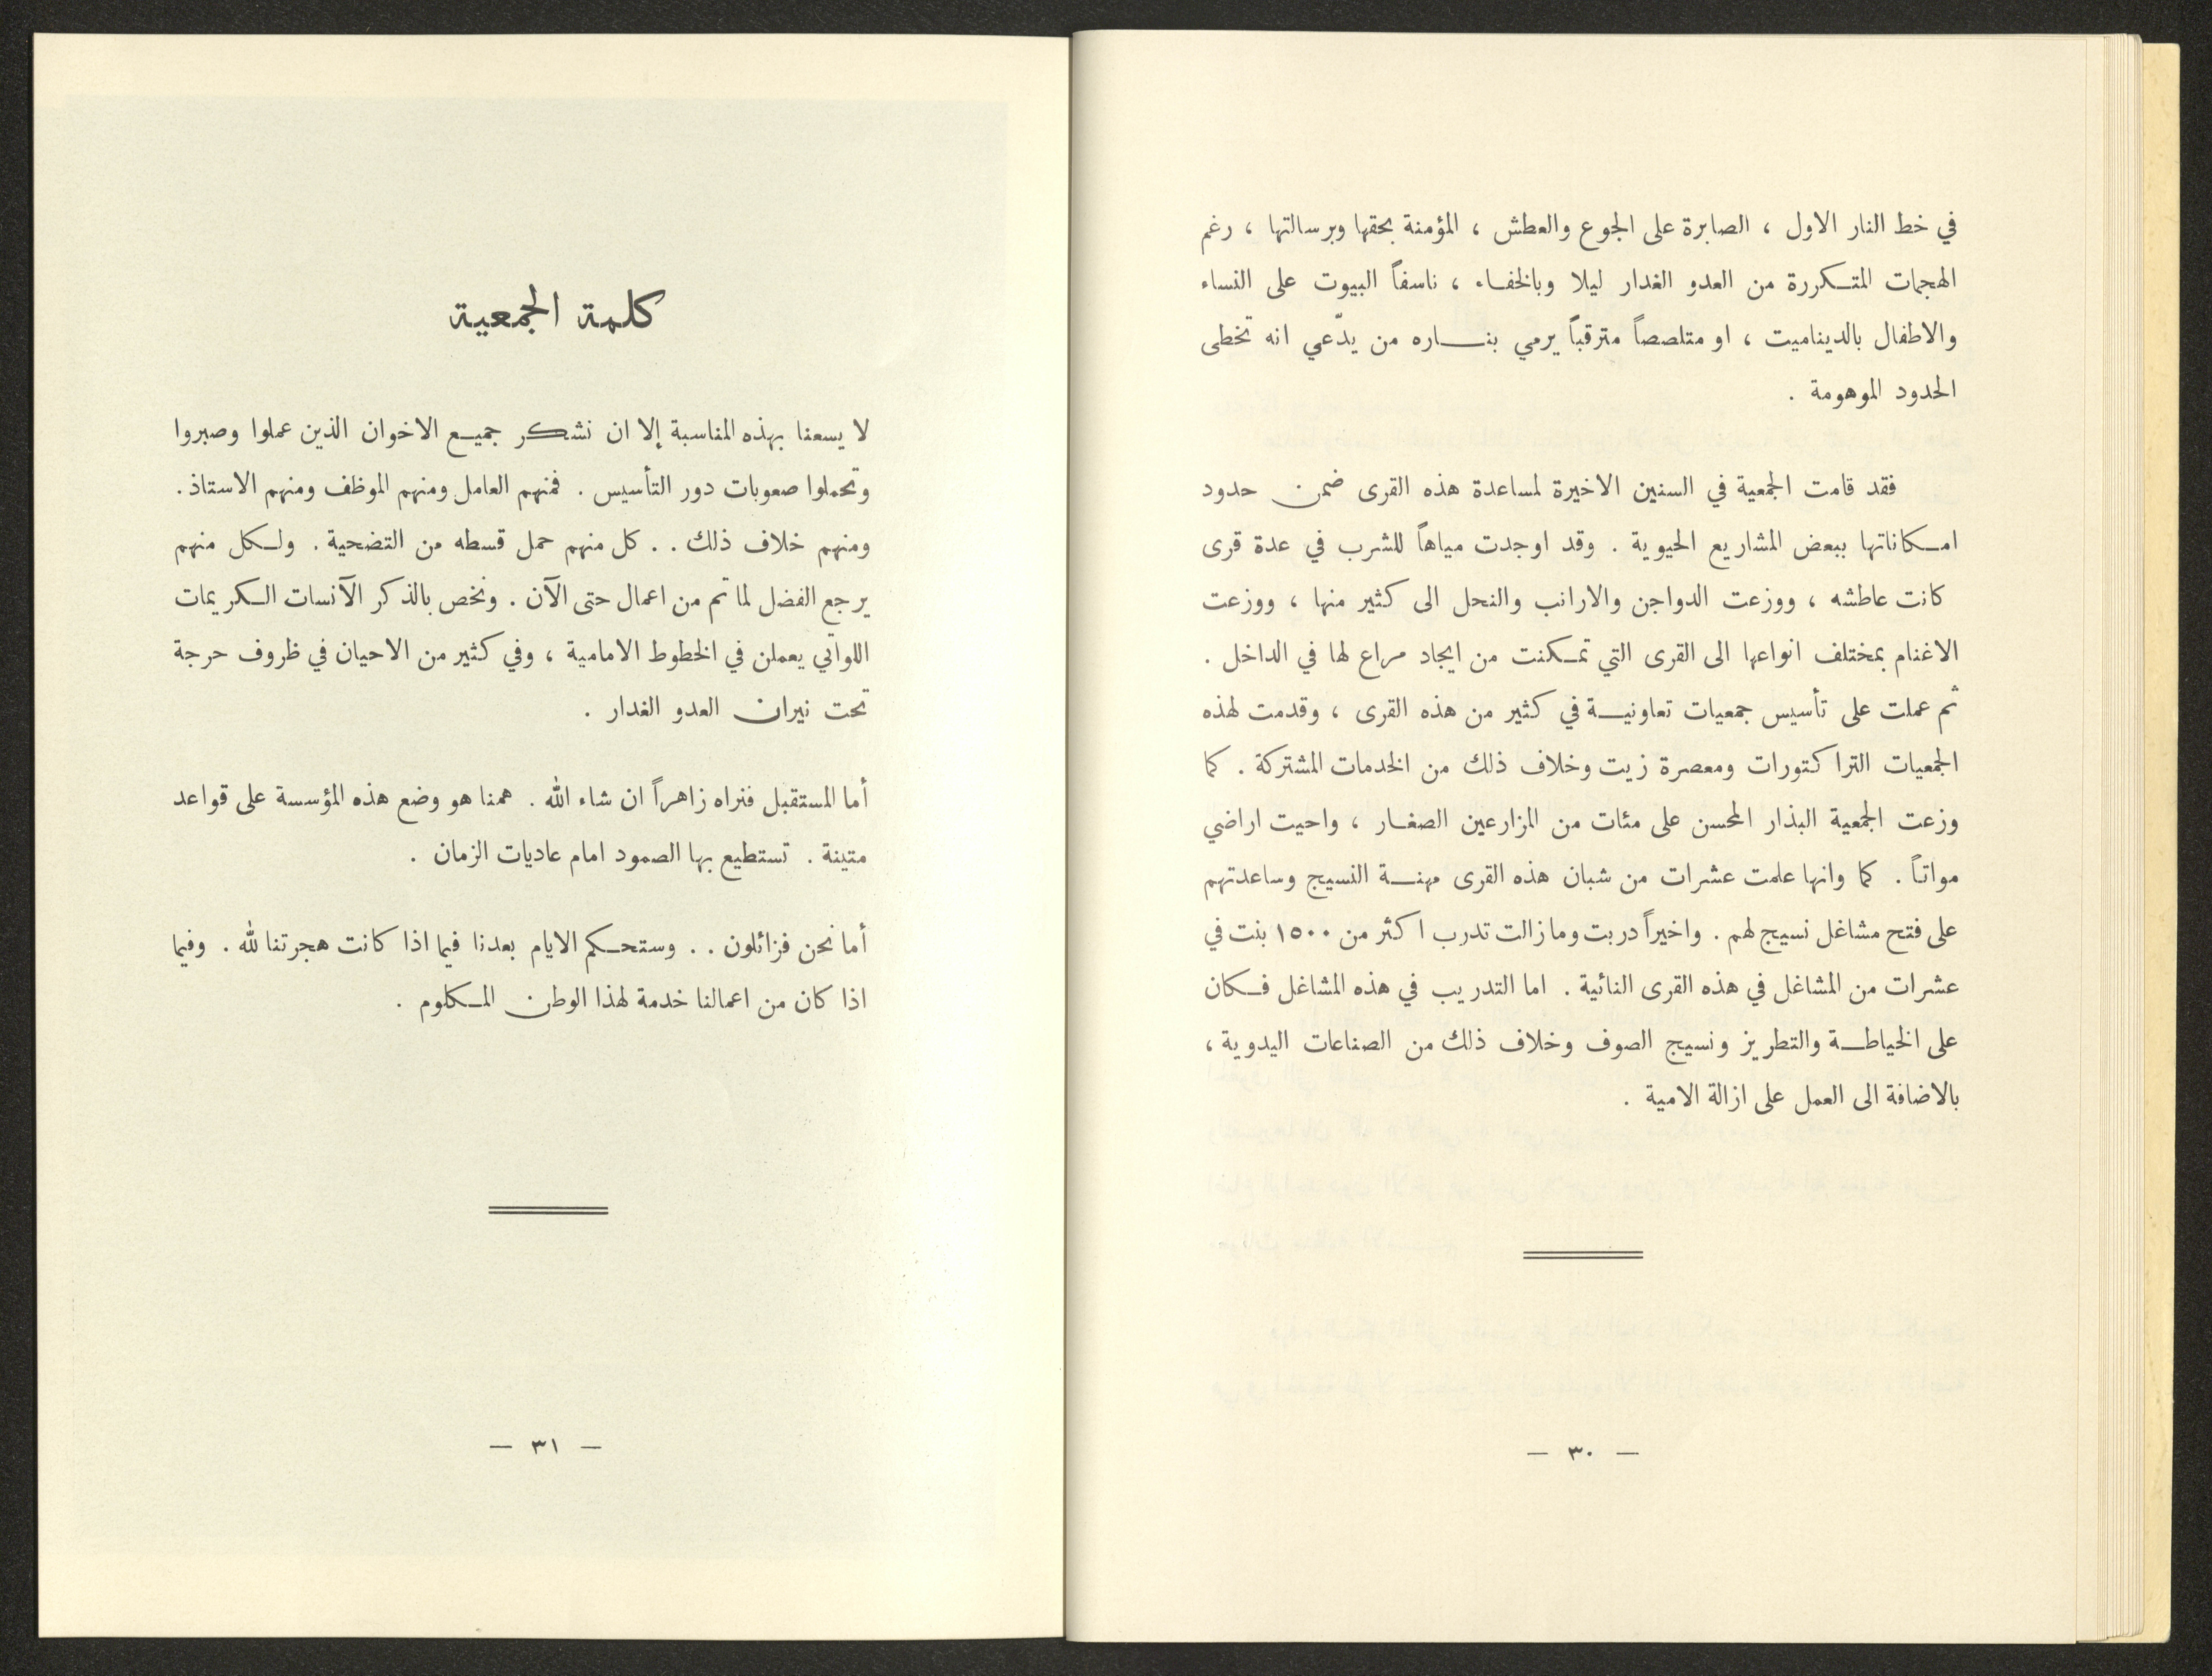 في خط النار الاول ، الصابرة على الجوع والعطش ، المؤمنة بحقها وبرسالتها ، رغم
الهجمات المتكررة من العدو الغدار ليلا وبالخفاء ، ناسفاً البيوت على النساء
والاطفال بالديناميت ، او متلصصاً مترقباً يرمي بناره من يدّعي انه تخطى
الحدود الموهومة .
فقد قامت الجمعية في السنين الاخيرة لمساعدة هذه القرى ضمن حدود
امكاناتها ببعض المشاريع الحيوية . وقد اوجدت مياهاً للشرب في عدة قرى
كانت عاطشه ، ووزعت الدواجن والارانب والنحل الى كثير منها ، ووزعت
الاغنام بمختلف انواعها الى القرى التي تمكنت من ايجاد مراع لها في الداخل .
ثم عملت على تأسيس جمعيات تعاونية في كثير من هذه القرى ، وقدمت لهذه
الجمعيات التراكتورات ومعصرة زيت وخلاف ذلك من الخدمات المشتركة . كما
وزعت الجمعية البذار المحسن على مئات من المزارعين الصغار ، واحيت اراضي
مواتاً . كما وانها علمت عشرات من شبان هذه القرى مهنة النسيج وساعدتهم
على فتح مشاغل نسيج لهم . واخيراً دربت وما زالت تدرب اكثر من ١٥٠٠ بنت في
عشرات من المشاغل في هذه القرى النائية . اما التدريب في هذه المشاغل فكان
على الخياطة والتطريز ونسيج الصوف وخلاف ذلك من الصناعات اليدوية ،
بالاضافة الى العمل على ازالة الامية .
— ٣٠ —
كلمة الجمعية
لا يسعنا بهذه المناسبة إلا ان نشكر جميع الاخوان الذين عملوا وصبروا
وتحملوا صعوبات دور التأسيس . فمنهم العامل ومنهم الموظف ومنهم الاستاذ .
ومنهم خلاف ذلك . . كل منهم حمل قسطه من التضحية . ولكل منهم
يرجع الفضل لما تم من اعمال حتى الآن . ونخص بالذكر الآنسات الكريمات
اللواتي يعملن في الخطوط الامامية ، وفي كثير من الاحيان في ظروف حرجة
تحت نيران العدو الغدار .
أما المستقبل فنراه زاهراً ان شاء الله . همنا هو وضع هذه المؤسسة على قواعد
متينة . تستطيع بها الصمود امام عاديات الزمان .
أما نحن فزائلون . . وستحكم الايام بعدنا فيما اذا كانت هجرتنا لله . وفيما
اذا كان من اعمالنا خدمة لهذا الوطن المكلوم .
— ٣١ —